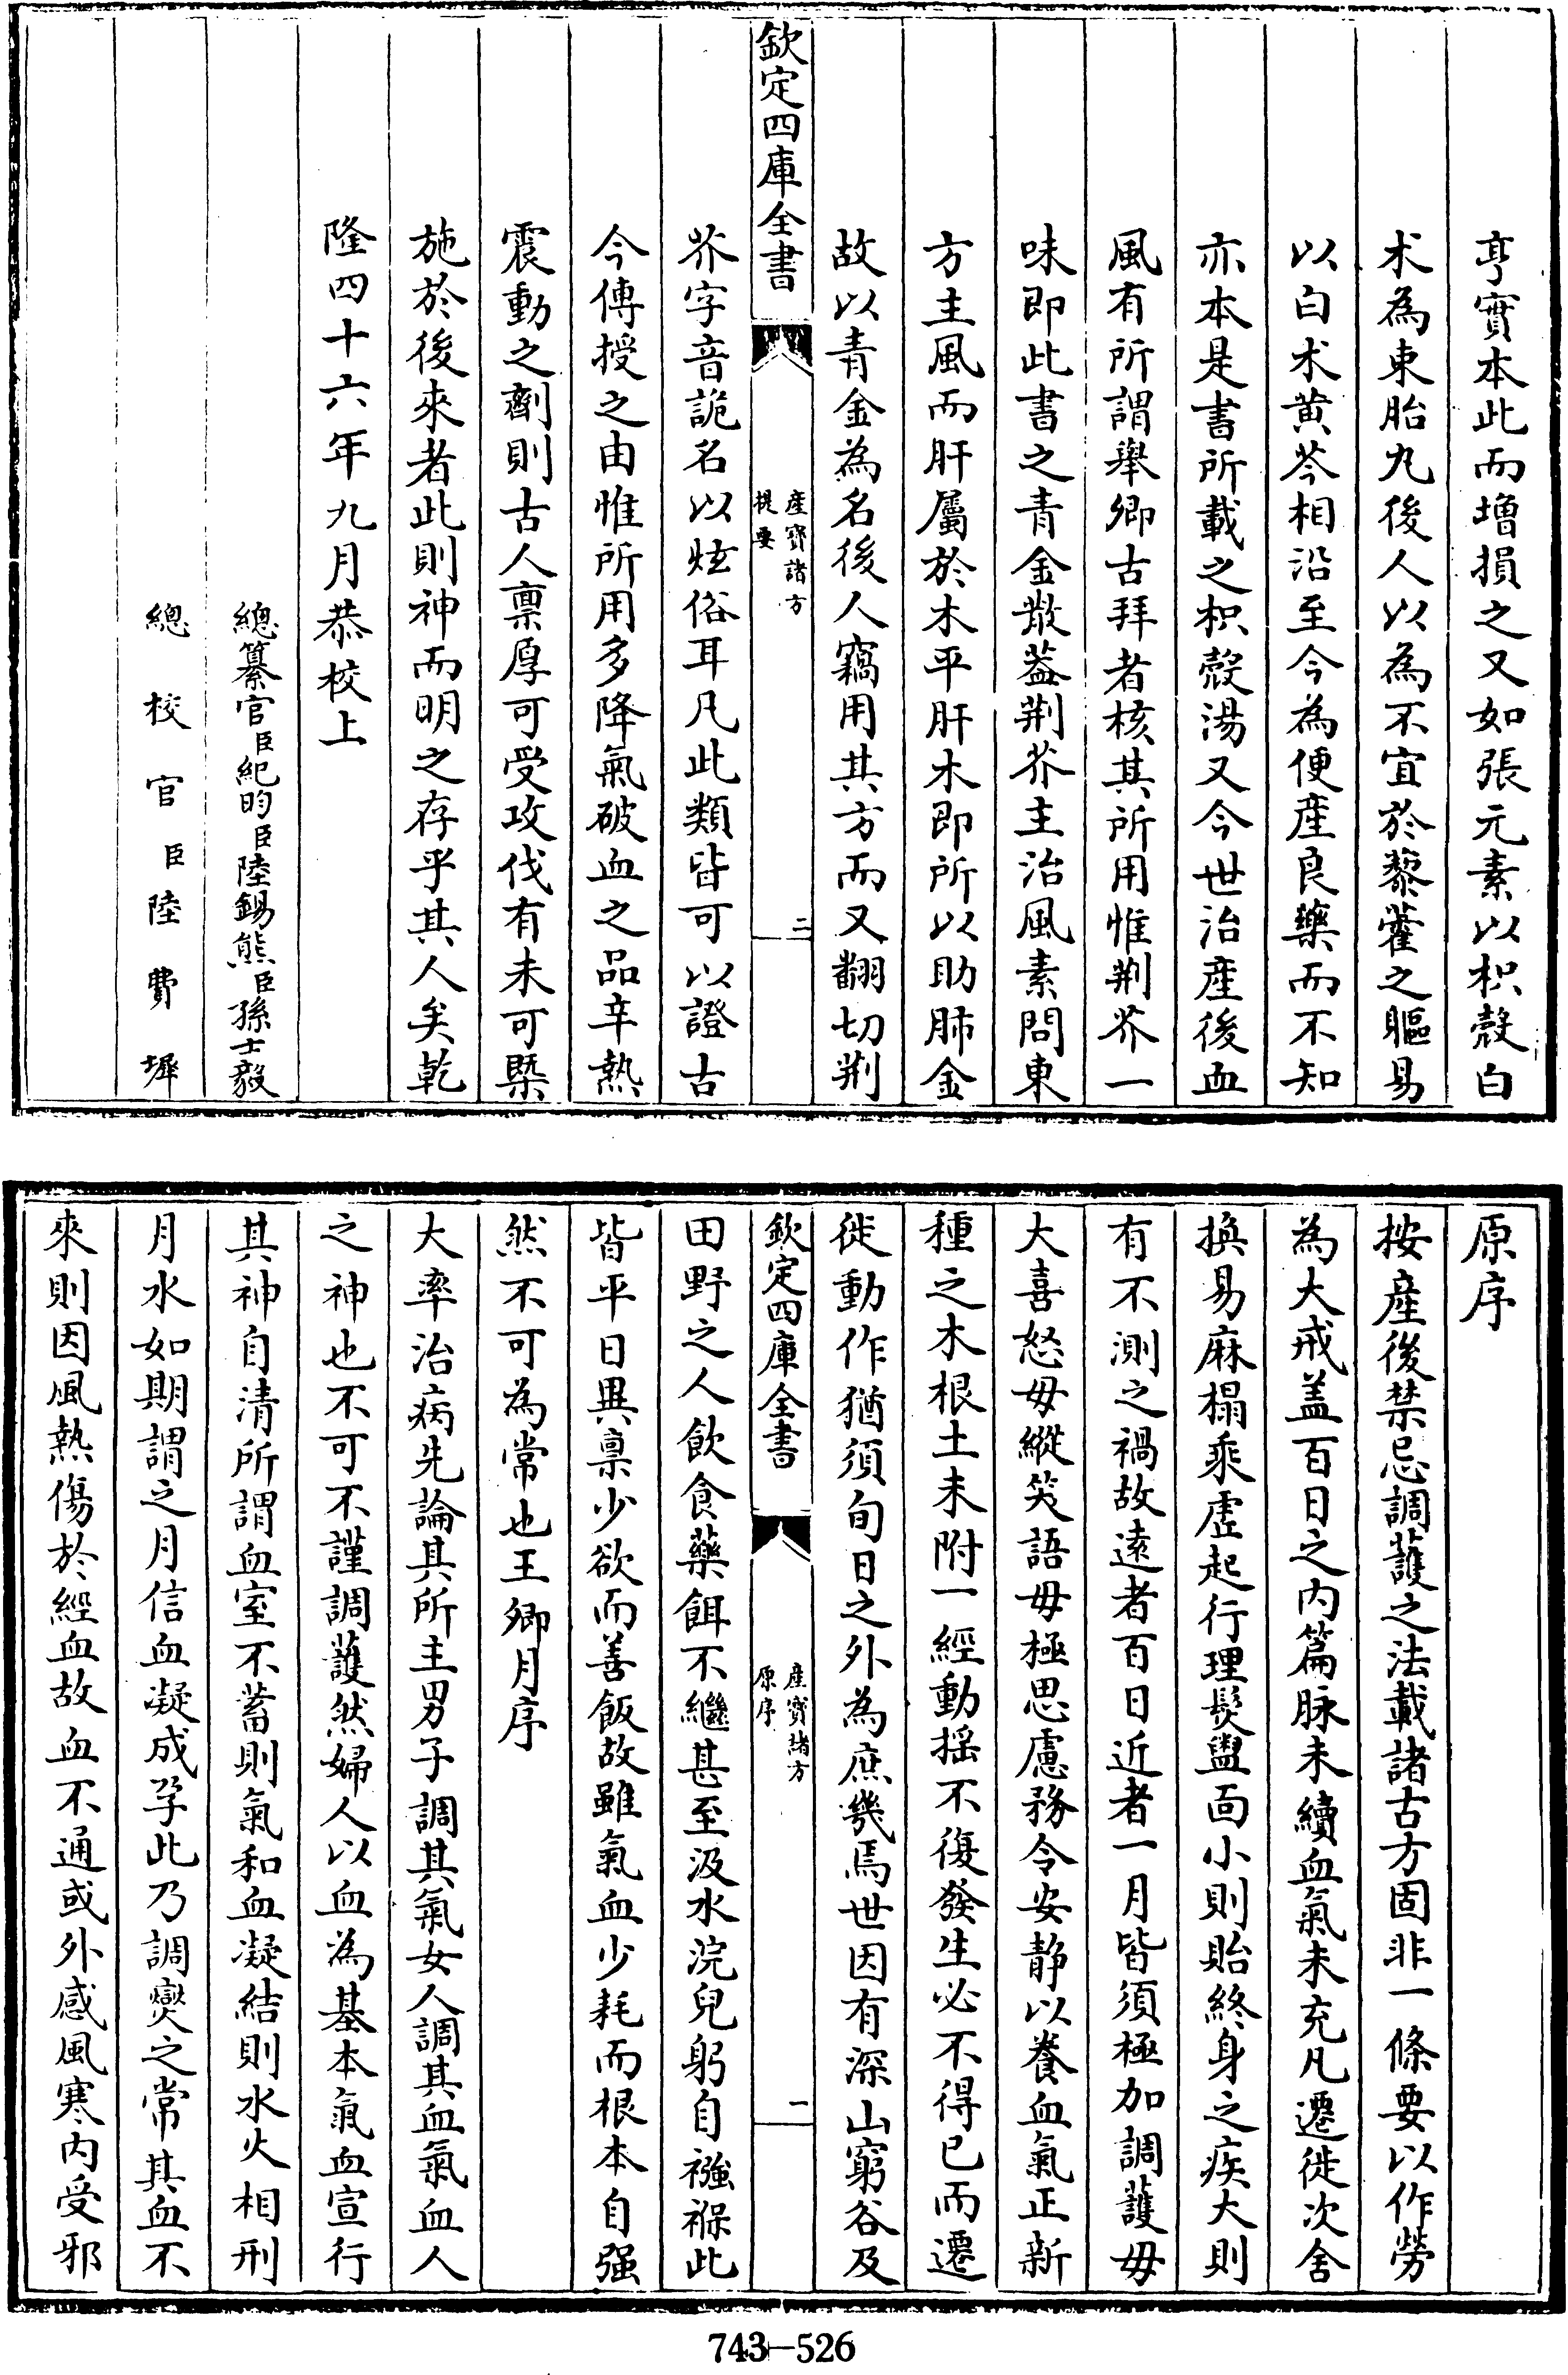 亨實本此而増損之又如張元素以枳殻白
术為束胎丸後人以為不宜於藜藿之軀易
以白术黄芩相沿至今為便産良藥而不知
亦本是書所載之枳殻湯又今世治産後血
風有所謂舉卿古拜者核其所用惟荆芥一
味即此書之青金散葢荆芥主治風素問東
方主風而肝屬於木平肝木即所以助肺金
故以青金為名後人竊用其方而又翻切荆
欽定四庫全書
産寶諸方
提要
二
芥字音詭名以炫俗耳凡此類皆可以證古
今傳授之由惟所用多降氣破血之品辛熱
震動之劑則古人禀厚可受攻伐有未可槩
施於後來者此則神而明之存乎其人矣乾
隆四十六年九月恭校上
總纂官臣紀昀臣陸錫熊臣孫士毅
總校官臣陸費墀
原序
按産後禁忌調護之法載諸古方固非一條要以作勞
為大戒盖百日之内篇脉未續血氣未充凡遷徙次舍
換易麻榻乘虚起行理髮盥面小則貽終身之疾大則
有不測之禍故遠者百日近者一月皆須極加調護毋
大喜怒毋縱笑語毋極思慮務令安静以養血氣正新
種之木根土未附一經動揺不復發生必不得已而遷
徙動作猶須旬日之外為庶幾焉世因有深山窮谷及
欽定四庫全書
産寶諸方
原序
一
田野之人飲食藥餌不繼甚至汲水浣兒躬自襁褓此
皆平日異禀少欲而善飯故雖氣血少耗而根本自强
然不可為常也王卿月序
大率治病先論其所主男子調其氣女人調其血氣血人
之神也不可不謹調護然婦人以血為基本氣血宣行
其神自清所謂血室不蓄則氣和血凝結則水火相刑
月水如期謂之月信血凝成孕此乃調燮之常其血不
來則因風熱傷於經血故血不通或外感風寒内受邪
743-526